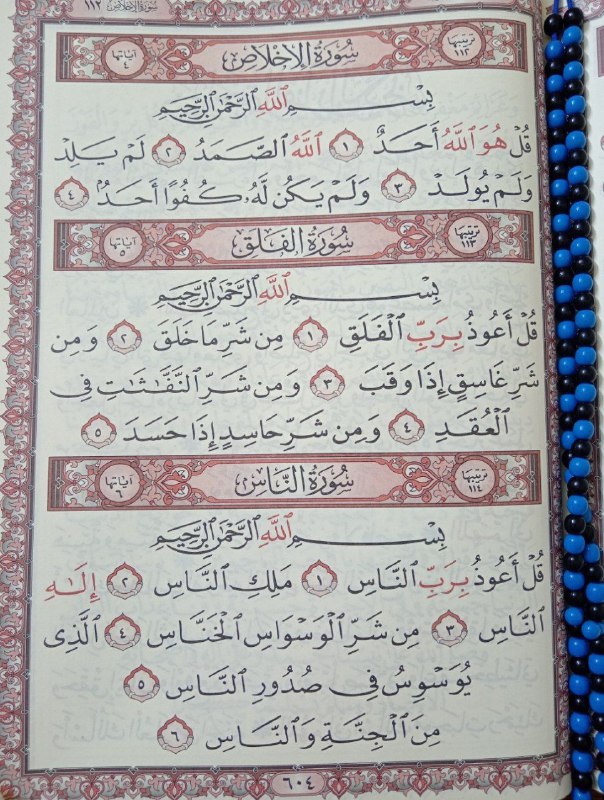 سُورَةُ الإِخْلَاصِ ١١٢
تَرتيبُها ١١٢ سُورَةُ الإِخْلَاصِ آيَاتُها ٤
بِسْمِ اللَّهِ الرَّحْمَٰنِ الرَّحِيمِ
قُلْ هُوَ اللَّهُ أَحَدٌ ١ اللَّهُ الصَّمَدُ ٢ لَمْ يَلِدْ
وَلَمْ يُولَدْ ٣ وَلَمْ يَكُن لَّهُۥ كُفُوًا أَحَدٌۢ ٤
تَرتيبُها ١١٣ سُورَةُ الفَلَقِ آيَاتُها ٥
بِسْمِ اللَّهِ الرَّحْمَٰنِ الرَّحِيمِ
قُلْ أَعُوذُ بِرَبِّ الْفَلَقِ ١ مِن شَرِّ مَا خَلَقَ ٢ وَمِن
شَرِّ غَاسِقٍ إِذَا وَقَبَ ٣ وَمِن شَرِّ النَّفَّٰثَٰتِ فِي
الْعُقَدِ ٤ وَمِن شَرِّ حَاسِدٍ إِذَا حَسَدَ ٥
تَرتيبُها ١١٤ سُورَةُ النَّاسِ آيَاتُها ٦
بِسْمِ اللَّهِ الرَّحْمَٰنِ الرَّحِيمِ
قُلْ أَعُوذُ بِرَبِّ النَّاسِ ١ مَلِكِ النَّاسِ ٢ إِلَٰهِ
النَّاسِ ٣ مِن شَرِّ الْوَسْوَاسِ الْخَنَّاسِ ٤ الَّذِي
يُوَسْوِسُ فِي صُدُورِ النَّاسِ ٥
مِنَ الْجِنَّةِ وَالنَّاسِ ٦
٦٠٤